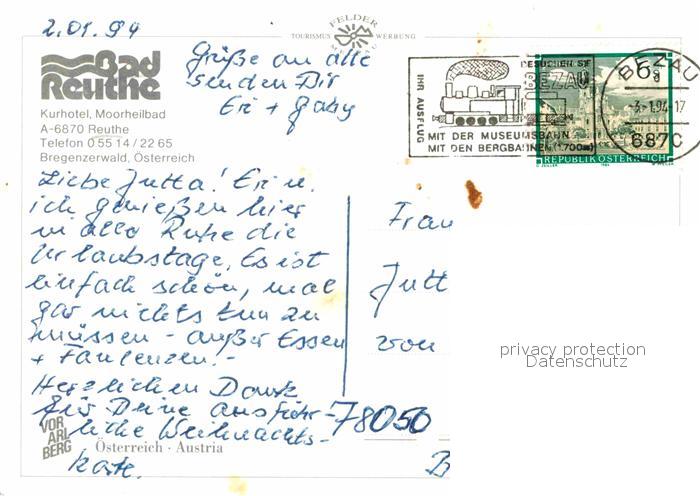 2.01.94
FELDER
TOURISMUS WERBUNG
Bad
Reuthe
Kurhotel, Moorheilbad
A-6870 Reuthe
Telefon 0 55 14 / 22 65
Bregenzerwald, Österreich
Grüße an alle
senden Dir
Eri + Gaby
IHR AUSFLUG
BESUCHEN SIE
BEZAU
MIT DER MUSEUMSBAHN
MIT DEN BERGBAHNEN (1700m)
6 S
REPUBLIK ÖSTERREICH
BEZAU
-3-1.94-17
6870
Liebe Jutta! Eri u.
ich genießen hier
in aller Ruhe die
Urlaubstage. Es ist
einfach schön, mal
gar nichts tun zu
müssen - außer Essen
+ Faulenzen.-
Herzlichen Dank
für Deine ausführ-
liche Weihnachts-
karte.
Frau
Jutt
von
78050
B
privacy protection
Datenschutz
VOR
ARL
BERG
Österreich · Austria